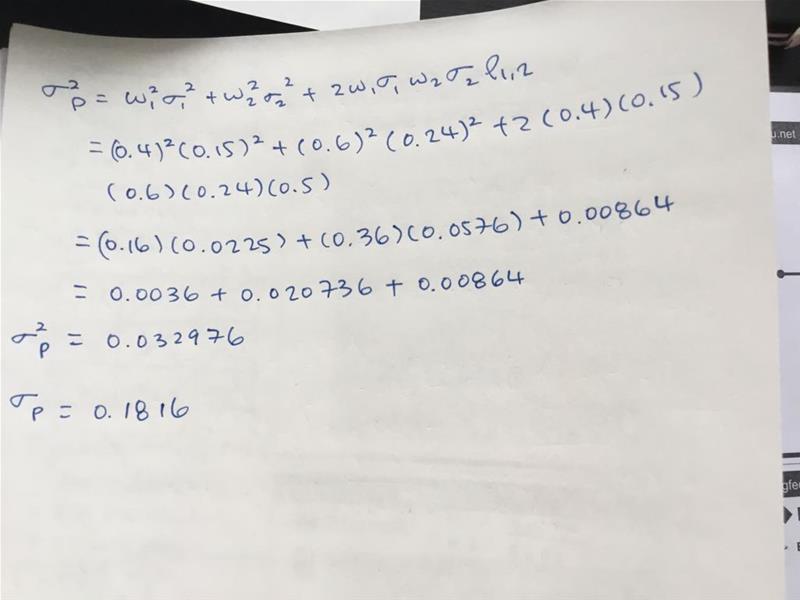 σ²p = w₁²σ₁² + w₂²σ₂² + 2w₁σ₁w₂σ₂ρ₁,₂
= (0.4)²(0.15)² + (0.6)²(0.24)² + 2(0.4)(0.15)
(0.6)(0.24)(0.5)
= (0.16)(0.0225) + (0.36)(0.0576) + 0.00864
= 0.0036 + 0.020736 + 0.00864
σ²p = 0.032976
σp = 0.1816
u.net